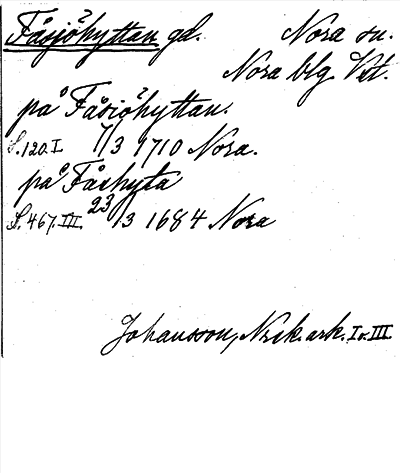 Fåsjöhyttan gd. Nora sn.
Nora blg Vst.
på Fåsiöhyttan.
S.120.I 7/3 1710 Nora.
på Fåshyta
S.467.III 23/3 1684 Nora
Johansson, Nzck.ark. I o. III